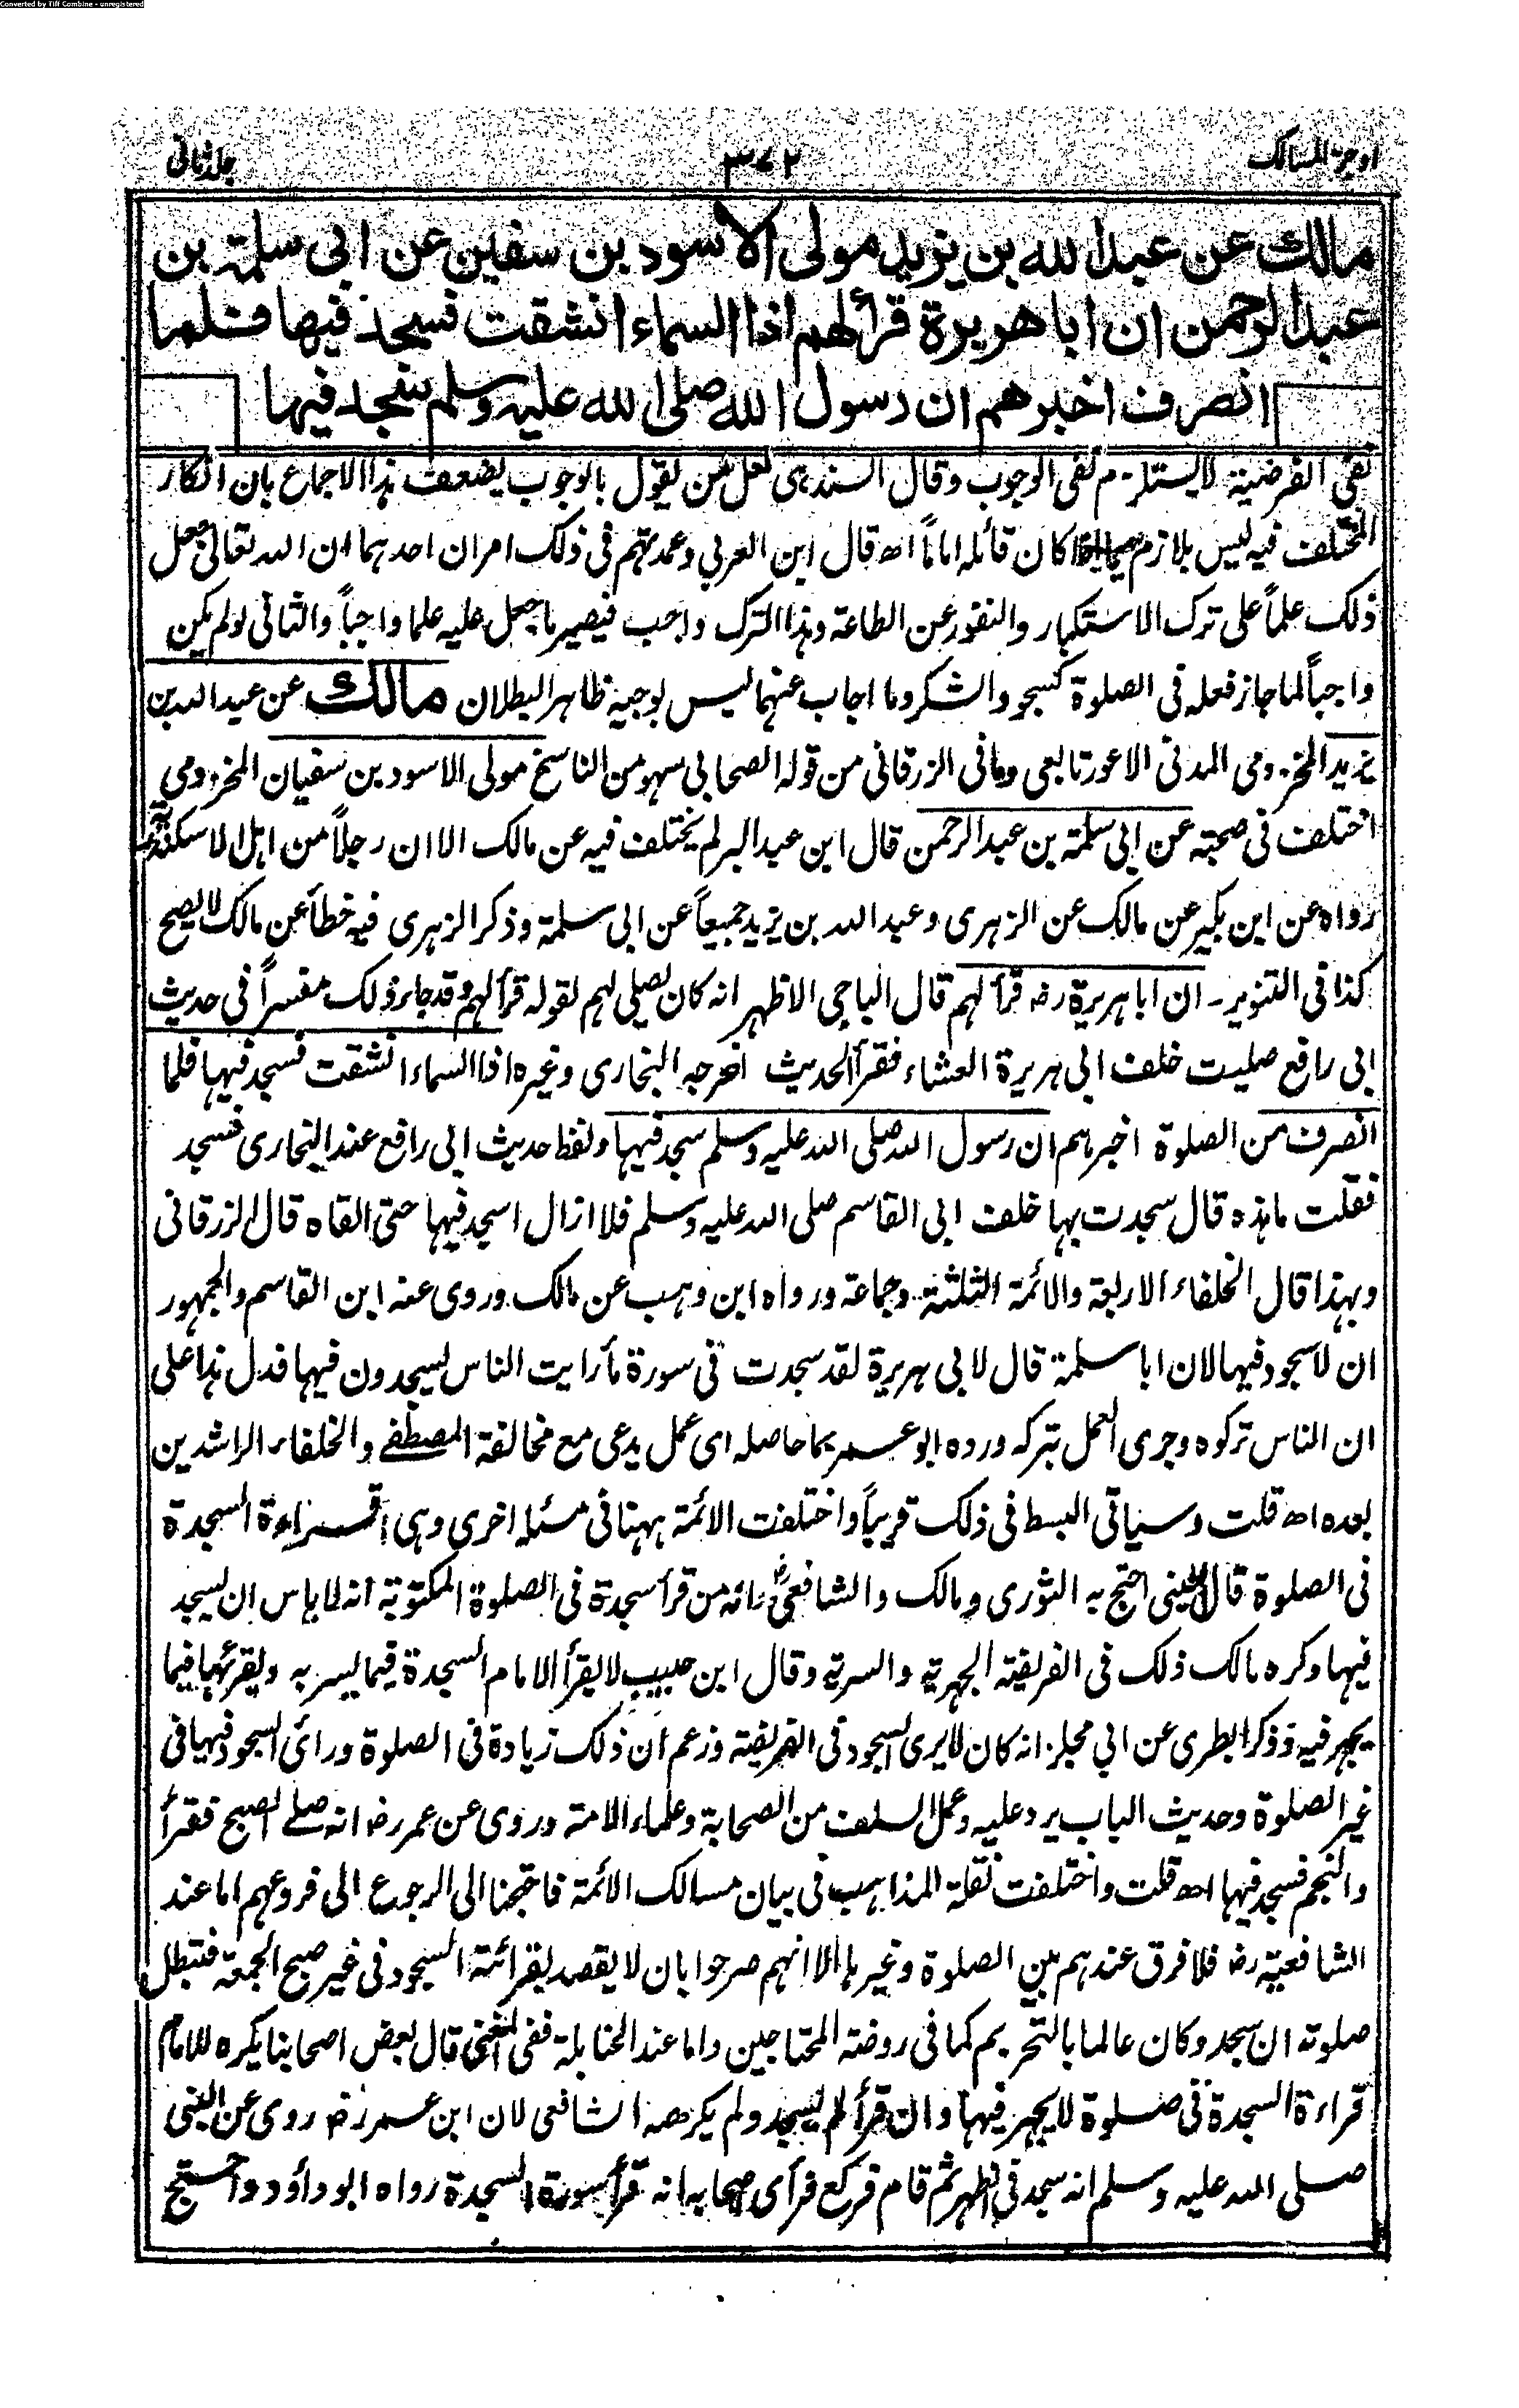 Converted by Tiff Combine - unregistered
اوجز المسالك ٣٧٢ جلد ثانی
مالك عن عبد الله بن يزيد مولى الاسود بن سفين عن ابى سلمة بن
عبد الرحمن ان ابا هريرة قرأ لهم اذا السماء انشقت فسجد فيها فلما
انصرف اخبرهم ان رسول الله صلى الله عليه وسلم سجد فيها
نفى الفرضية لا يستلزم نفى الوجوب وقال السندہی لعل من يقول بالوجوب يضعف ہذا الاجماع بان انكار
المختلف فيه ليس بلازم كان قائله اماماً اھ قال ابن العربي وعمدتہم فى ذلك امران احدہما ان اللہ تعالىٰ جعل
ذلك علماً على ترك الاستكبار والنفور عن الطاعة وہذا الترك واجب فيصير ما جعل عليه علما واجباً والثانى لو لم يكن
واجباً لما جاز فعله فى الصلوة كسجود الشكر وما اجاب عنہما ليس بوجيه ظاہر البطلان مالك عن عبد اللہ بن
يزيد المخزومى المدنى الاعور تابعى وما فى الزرقانى من قوله الصحابي سہو من الناسخ مولى الاسود بن سفيان المخزومى
اختلف فى صحبته عن ابى سلمة بن عبد الرحمن قال ابن عبد البر لم يختلف فيه عن مالك الا ان رجلاً من اہل الاسكندرية
رواه عن ابن بكير عن مالك عن الزہرى وعبد اللہ بن يزيد جميعاً عن ابى سلمة وذكر الزہرى فيه خطأ عن مالك لا يصح
كذا فى التنوير۔ ان ابا ہريرة رض قرأ لہم قال الباجى الاظہر انه كان يصلى لہم لقوله قرأ لہم وقد جاء ذلك مفسراً فى حديث
ابى رافع صليت خلف ابى ہريرة العشاء فقرأ الحديث اخرجه البخارى وغيره اذا السماء انشقت فسجد فيہا فلما
انصرف من الصلوة اخبرہم ان رسول اللہ صلى اللہ عليه وسلم سجد فيہا ولفظ حديث ابى رافع عند البخارى فسجد
فقلت ما ہذہ قال سجدت بہا خلف ابى القاسم صلى اللہ عليه وسلم فلا ازال اسجد فيہا حتى القاه قال الزرقانى
وبہذا قال الخلفاء الاربعة والائمة الثلثة وجماعة ورواه ابن وہب عن مالك وروى عنه ابن القاسم والجمہور
ان لا سجود فيہا لان ابا سلمة قال لابى ہريرة لقد سجدت فى سورة ما رايت الناس يسجدون فيہا فدل ہذا على
ان الناس تركوه وجرى العمل بتركه ورده ابو عمر بما حاصله اى عمل يدعى مع مخالفة المصطفى والخلفاء الراشدين
بعده اھ قلت وسياتى البسط فى ذلك قريباً واختلفت الائمة ہہنا فى مسئلہ اخرى وہى قراءة السجدة
فى الصلوة قال العينى احتج به الثورى ومالك والشافعى انه من قرأ سجدة فى الصلوة المكتوبة انه لا باس ان يسجد
فيہا وكره مالك ذلك فى الفريضة الجہرية والسرية وقال ابن حبيب لا يقرأ الامام السجدة فيما يسر به ويقرئہا فيما
يجہر فيه وذكر الطبرى عن ابى مجلز انه كان لا يرى السجود فى الفريضة وزعم ان ذلك زيادة فى الصلوة ورأى السجود فيہا فى
غير الصلوة وحديث الباب يرد عليه وعمل السلف من الصحابة وعلماء الامة وروى عن عمر رض انه صلى الصبح فقرأ
والنجم فسجد فيہا اھ قلت واختلفت نقلة المذاہب فى بيان مسالك الائمة فاحتجنا الى الرجوع الى فروعہم اما عند
الشافعية رض فلا فرق عندہم بين الصلوة وغيرہا الا انہم صرحوا بان لا يقصد بقرائتہ السجود فى غير صبح الجمعة فتبطل
صلوته ان سجد وكان عالما بالتحريم كما فى روضة المحتاجين واما عند الحنابلة ففى المغنى قال بعض اصحابنا يكره للامام
قراءة السجدة فى صلوة لا يجہر فيہا وان قرأ لم يسجد ولم يكرهه الشافعى لان ابن عمر رض روى عن النبى
صلى اللہ عليه وسلم انه سجد فى الظہر ثم قام فركع فرأى اصحابه انه قرأ سورة السجدة رواه ابو داؤد واحتج